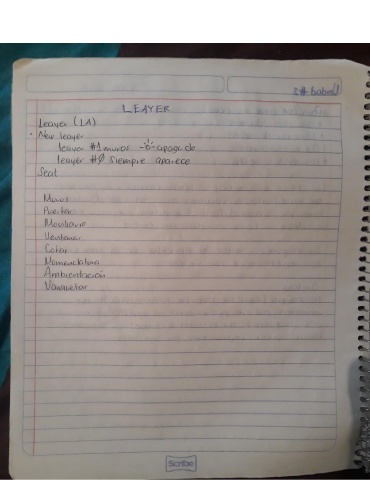 LEAYER
Leayer (LA)
• New leayer
leayer #1 muros apagado
leayer #0 siempre aparece
Muros
Puertas
Mobiliario
Ventanas
Cotas
Nomenclatura
Ambientación
Scribe